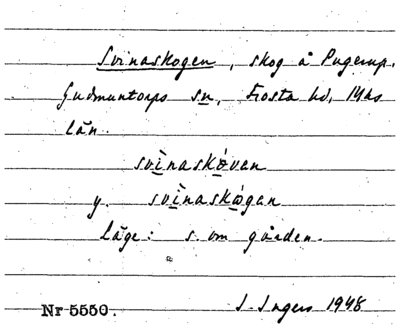 Svinaskogen, skog å Pugerup.
Gudmuntorps sn, Frosta hd, Mhs
län.
svìnaskóvan
y. svìnaskógan
läge: s. om gården.
Nr 5550. I. Ingers 1948